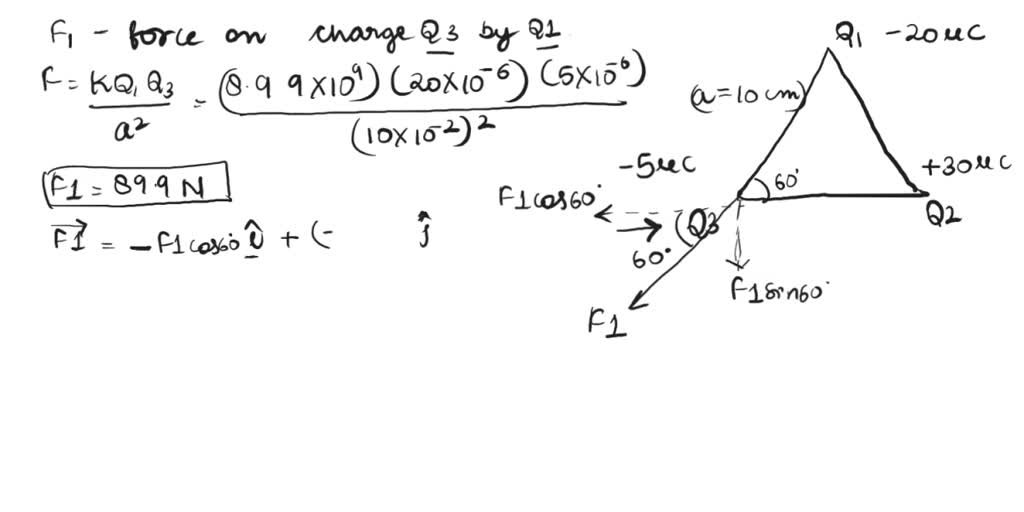 F1 - force on charge Q3 by Q1
F = KQ1 Q3 / a² = (8.9 9×10⁹) (20×10⁻⁶) (5×10⁻⁶) / (10×10⁻²)²
F1 = 89.9 N
F1 = -F1cos60° î + (- ĵ
Q1 -20μC
(a=10 cm)
-5μC
+30μC
60°
F1cos60°
Q3
Q2
60°
F1sin60°
F1